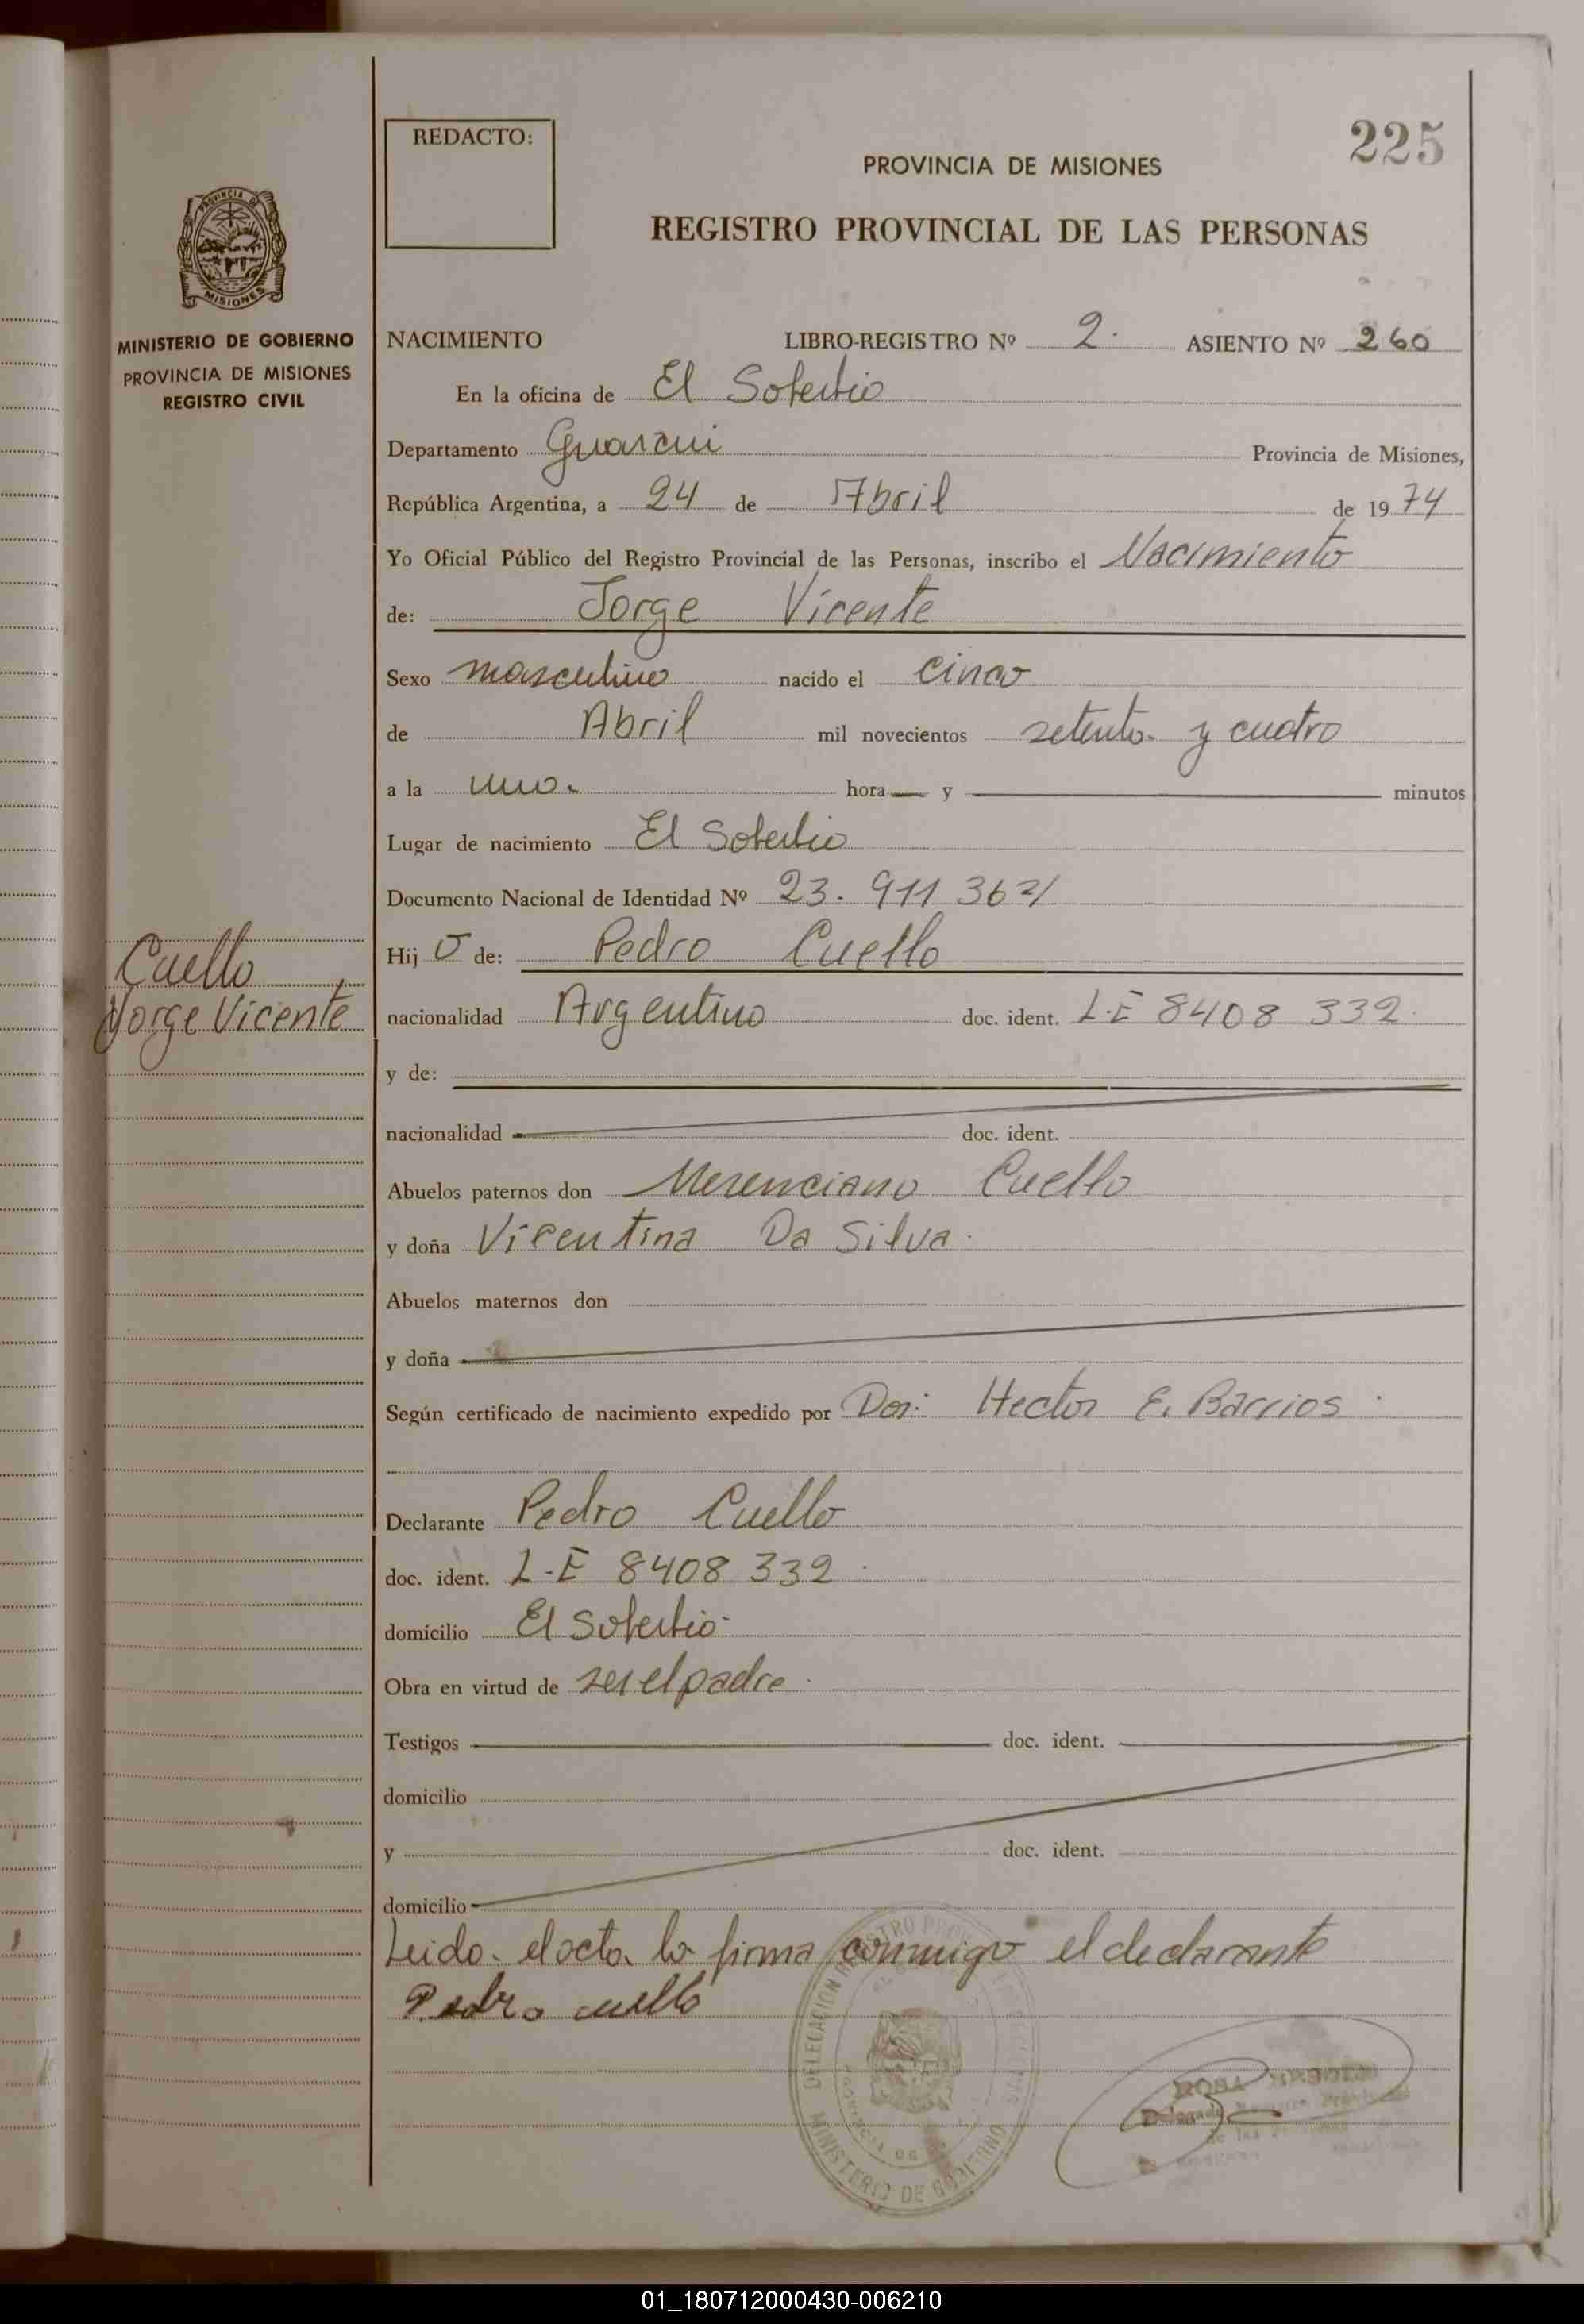 225
REDACTO:
PROVINCIA DE MISIONES
REGISTRO PROVINCIAL DE LAS PERSONAS
PROVINCIA DE
MISIONES
MINISTERIO DE GOBIERNO
PROVINCIA DE MISIONES
REGISTRO CIVIL
NACIMIENTO LIBRO-REGISTRO Nº 2. ASIENTO Nº 260
En la oficina de El Soberbio
Departamento Guarani Provincia de Misiones,
República Argentina, a 24 de Abril de 1974
Yo Oficial Público del Registro Provincial de las Personas, inscribo el Nacimiento
de: Jorge Vicente
Sexo masculino nacido el cinco
de Abril mil novecientos setenta y cuatro
a la una. hora y minutos
Lugar de nacimiento El Soberbio
Documento Nacional de Identidad Nº 23. 911
Hijo de: Pedro Cuello
Cuello
Jorge Vicente
nacionalidad Argentino doc. ident. L.E 8408 332.
y de:
nacionalidad doc. ident.
Abuelos paternos don Merenciano Cuello
y doña Vicentina Da Silva.
Abuelos maternos don
y doña
Según certificado de nacimiento expedido por Hector E. Barrios
Declarante Pedro Cuello
doc. ident. L-E 8408 332
domicilio El Soberbio
Obra en virtud de ser el padre
Testigos doc. ident.
domicilio
y doc. ident.
domicilio
Leida el acta la firma conmigo el declarante
Pedro cuello
DELEGACION REGISTRO
MINISTERIO DE GOBIERNO
01_180712000430-006210